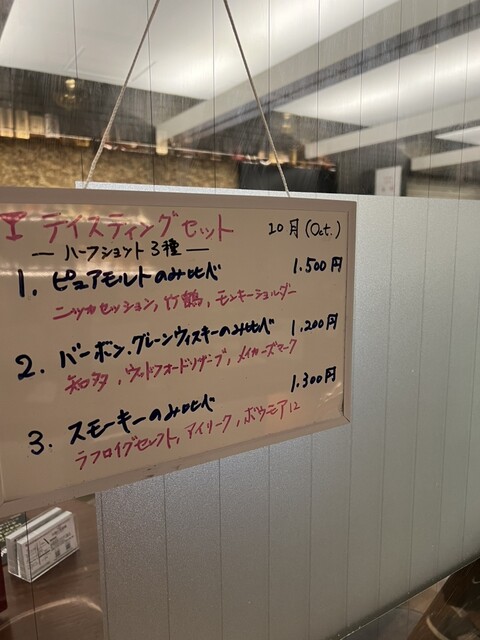 テイスティングセット 10月(Oct.)
ー ハーフショット3種 ー
1. ピュアモルトのみ比べ 1.500円
ニッカセッション, 竹鶴, モンキーショルダー
2. バーボン.グレーンウィスキーのみ比べ 1.200円
知多, ウッドフォードリザーブ, メイカーズマーク
3. スモーキーのみ比べ 1.300円
ラフロイグセレクト, アイリーク, ボウモア12